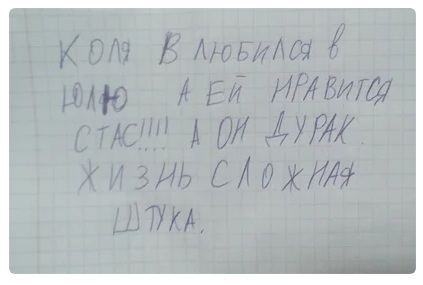 КОЛЯ В ЛЮБИЛСЯ В
ЮЛЮ А ЕЙ НРАВИТСЯ
СТАС!!!! А ОН ДУРАК.
ЖИЗНЬ СЛОЖНАЯ
ШТУКА.